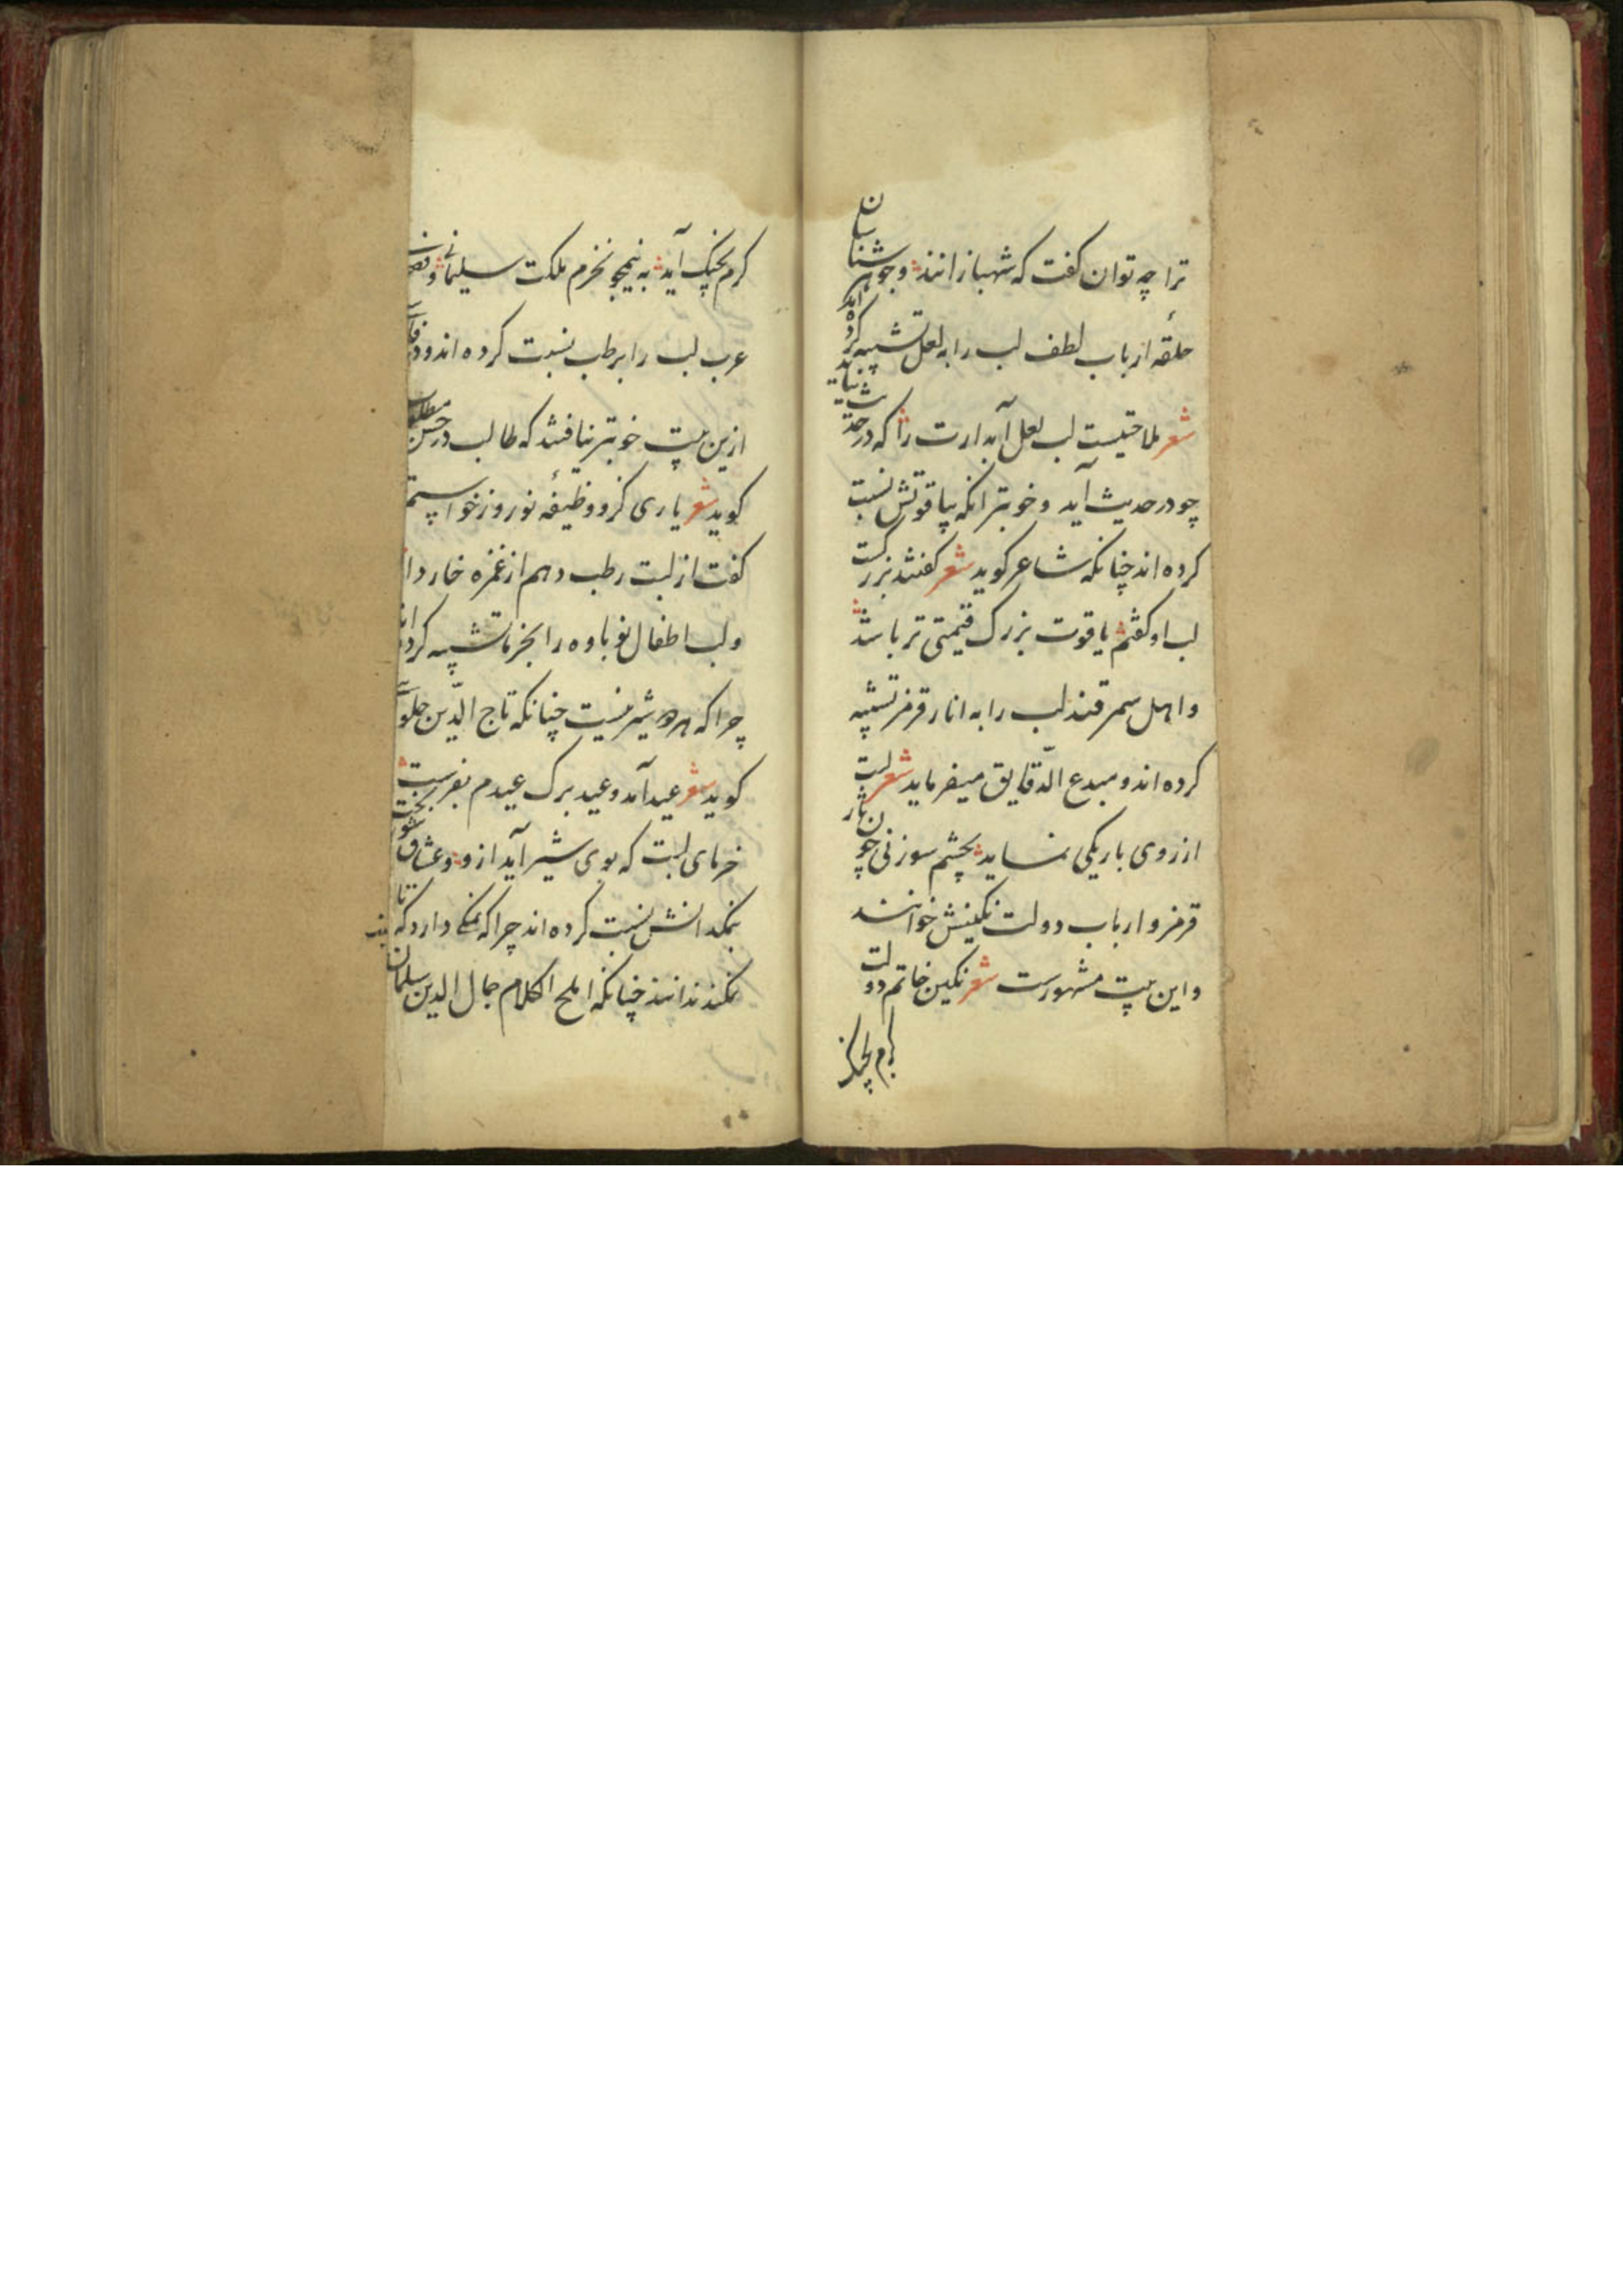 ترا چه توان کفت که شهباز انند وجوهر شناسان
حلقهٔ ارباب لطف لب را به لعل تشبیه کرده اند
شعر ملاحتیست لب لعل آبدارت را که در حدیث نیاید
چو در حدیث آید وخوبتر انکه بیاقوتش نسبت
کرده اند چنانکه شاعر کوید شعر کفتند بزرکست
لب او کفتم یاقوت بزرک قیمتی تر باشد
واهل سمرقند لب را به انار قرمز تشبیه
کرده اند ومبدع الدّقایق میفرماید شعر لبت
از روی باریکی نماید بچشم سوزنی چون نار
قرمز وارباب دولت نکینش خوانند
واین بیت مشهورست شعر نکین خاتم دولت
کرم بچنک
کرم بچنک آید به نیمجو نخرم ملکت سلیمانی و
عرب لب را برطب نسبت کرده اند و
ازین بیت خوبتر نیافتند که طالب در حسن مطلب
کوید شعر یاری کزو وظیفهٔ نوروز خواستم
کفت از لبت رطب دهم از غمزه خار
ولب اطفال نوباوه را بخرما تشبیه کرده اند
چرا که هردو شیرینست چنانکه تاج الدّین حلوایی
کوید شعر عید آمد وعید برک عیدم بفرست
خرمای لبت که بوی شیر آید ازو وعشاق شور بخت
بنمکدانش نسبت کرده اند چرا که نمکی دارد که تا
نمکند ندانند چنانکه املح الکلام جمال الدین سلمان